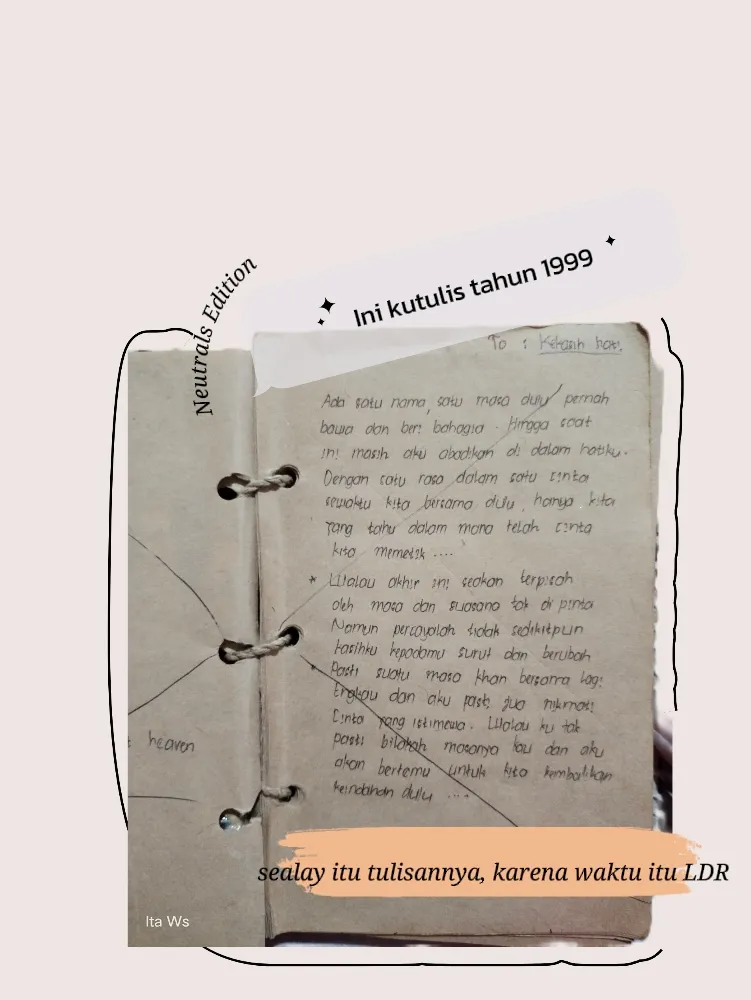 Neutrals Edition
Ini kutulis tahun 1999
To : Kekasih hati.
Ada satu nama, satu masa dulu pernah
bawa dan beri bahagia. Hingga saat
ini masih aku abadikan di dalam hatiku.
Dengan satu rasa dalam satu cinta
sewaktu kita bersama dulu, hanya kita
yang tahu dalam mana telah cinta
kita memetik ....
* Walau akhir ini seakan terpisah
oleh masa dan suasana tak di pinta
Namun percayalah tidak sedikitpun
kasihku kepadamu surut dan berubah
* Pasti suatu masa khan bersama lagi
Engkau dan aku pasti jua nikmati
Cinta yang istimewa. Walau ku tak
pasti bilakah masanya kau dan aku
akan bertemu untuk kita kembalikan
keindahan dulu ....
heaven
sealay itu tulisannya, karena waktu itu LDR
Ita Ws